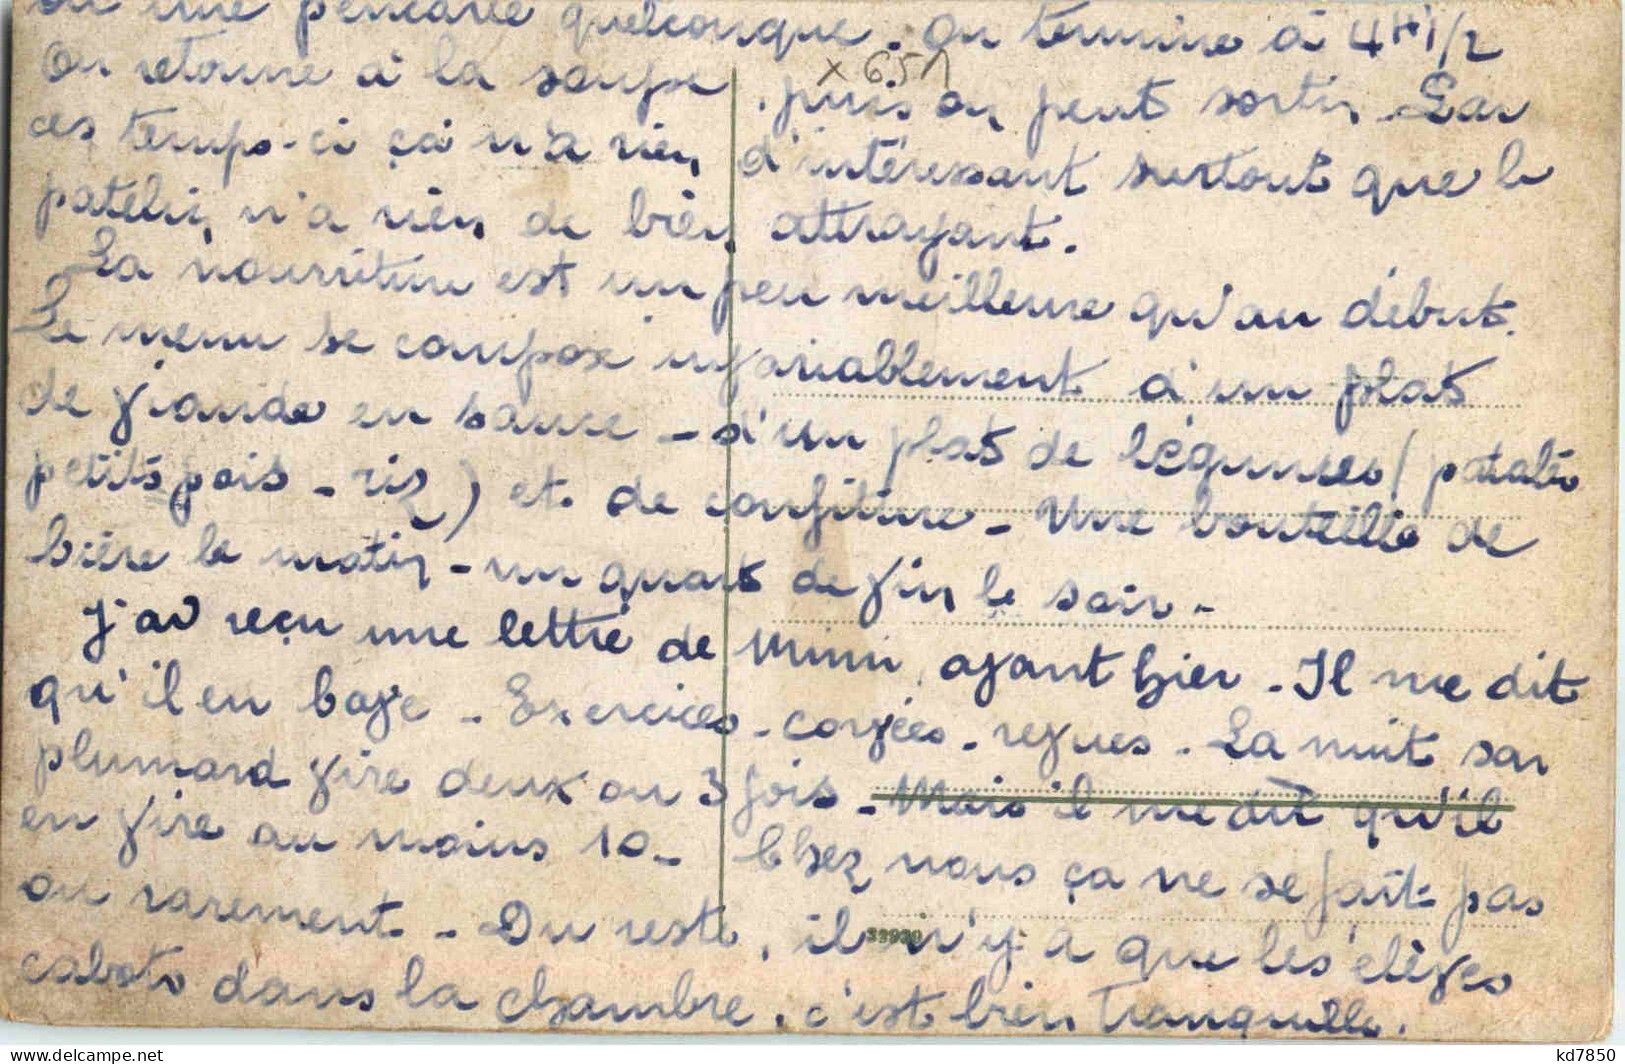 ou une pancarte quelconque. On termine à 4H1/2
x 651
On retourne à la soupe, puis on peut sortir. Par
ces temps-ci ça n'a rien d'intéressant surtout que le
patelin n'a rien de bien attrayant.
La nourriture est un peu meilleure qu'au début.
Le menu se compose invariablement d'un plat
de viande en sauce - d'un plat de légumes (patates
petits pois - riz) et de confiture - Une bouteille de
bière le matin - un quart de vin le soir -
J'ai reçu une lettre de Mimi, avant hier - Il me dit
qu'il en bave - Exercices - corvées - revues - La nuit son
plumard vire deux ou 3 fois - Mais il me dit qu'il
en vire au moins 10 - Chez nous ça ne se fait pas
ou rarement - Du reste, il n'y a que les élèves
33930
cabots dans la chambre, c'est bien tranquille.
kd7850